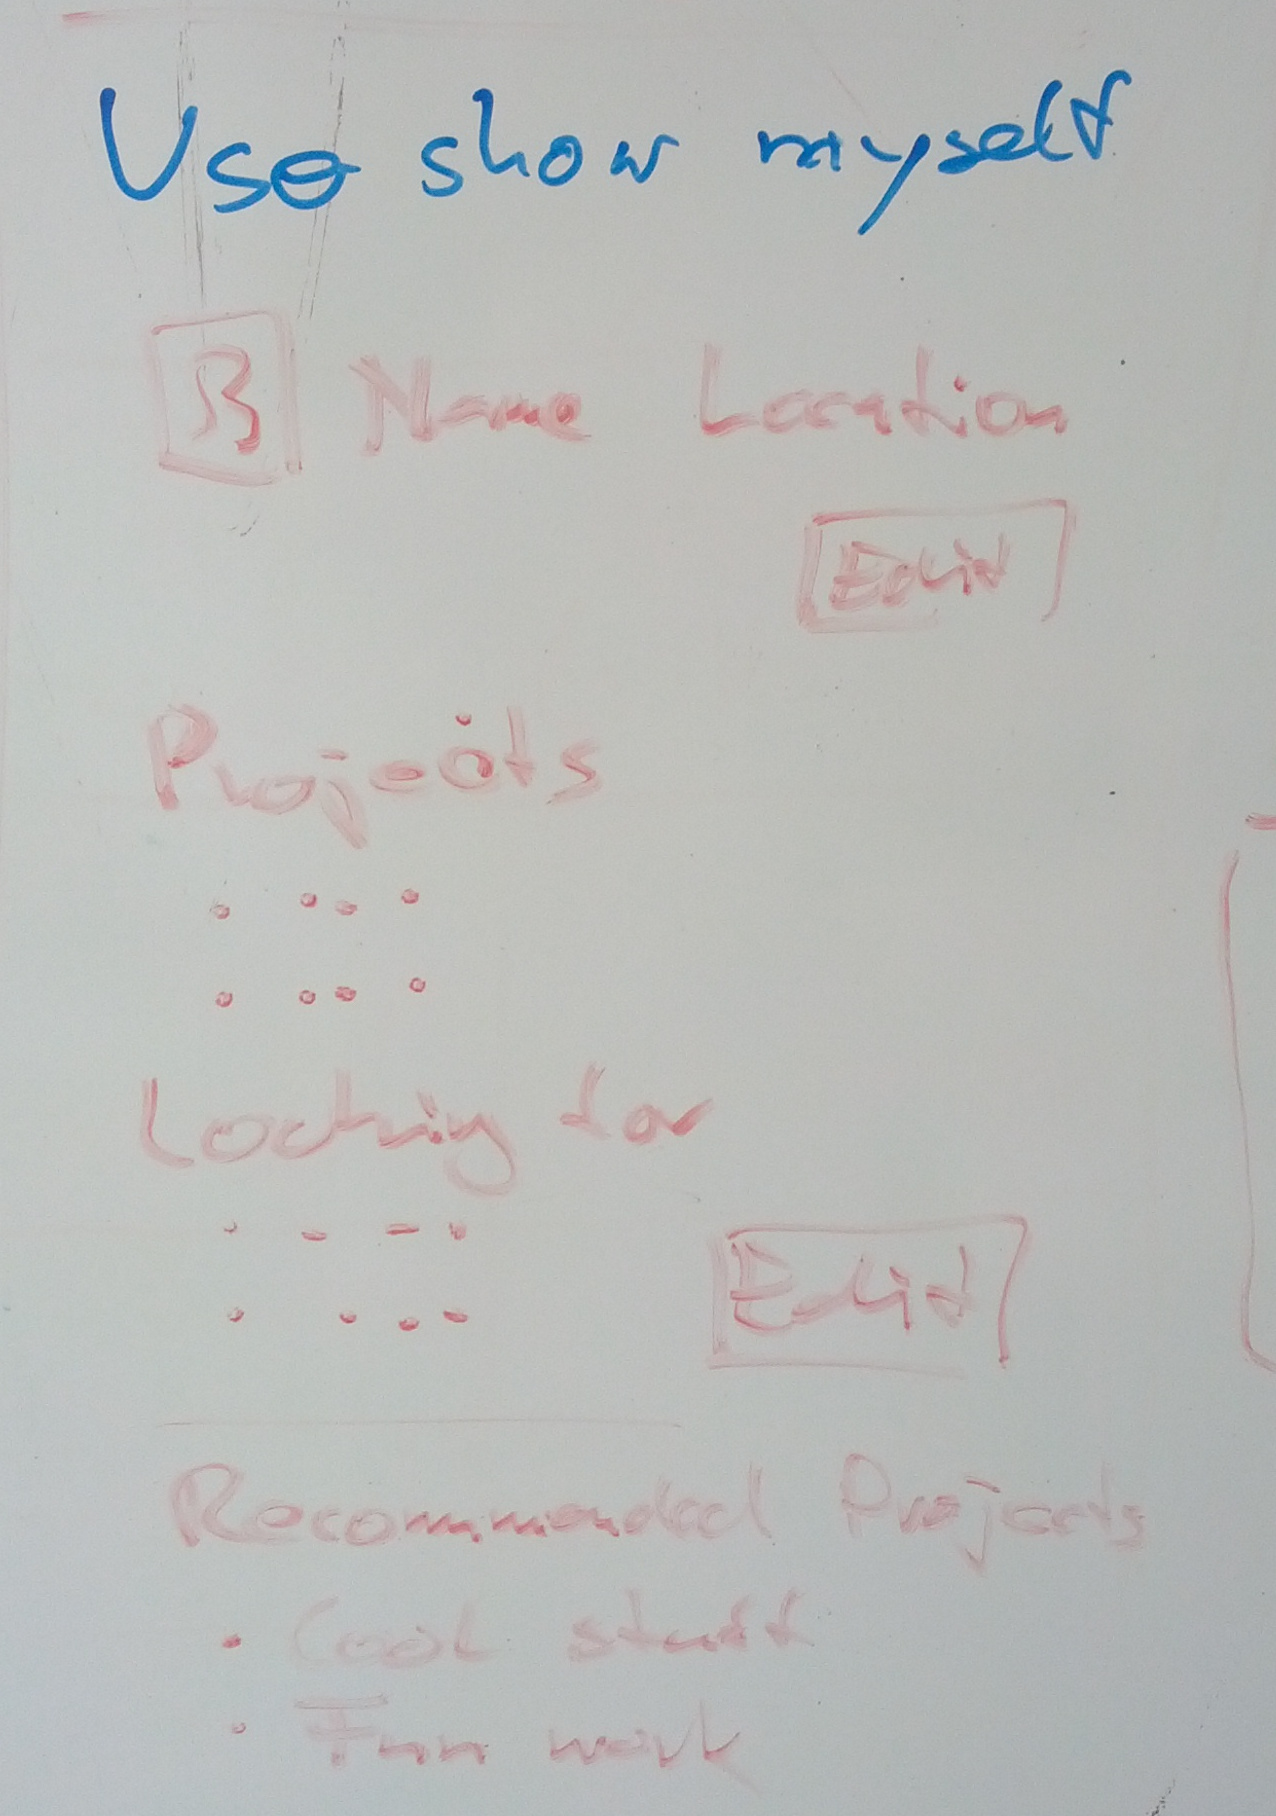 Use show myself
Name Location
Edit
Projects
Looking for
Edit
Recommended Projects
• Cool stuff
• Fun work